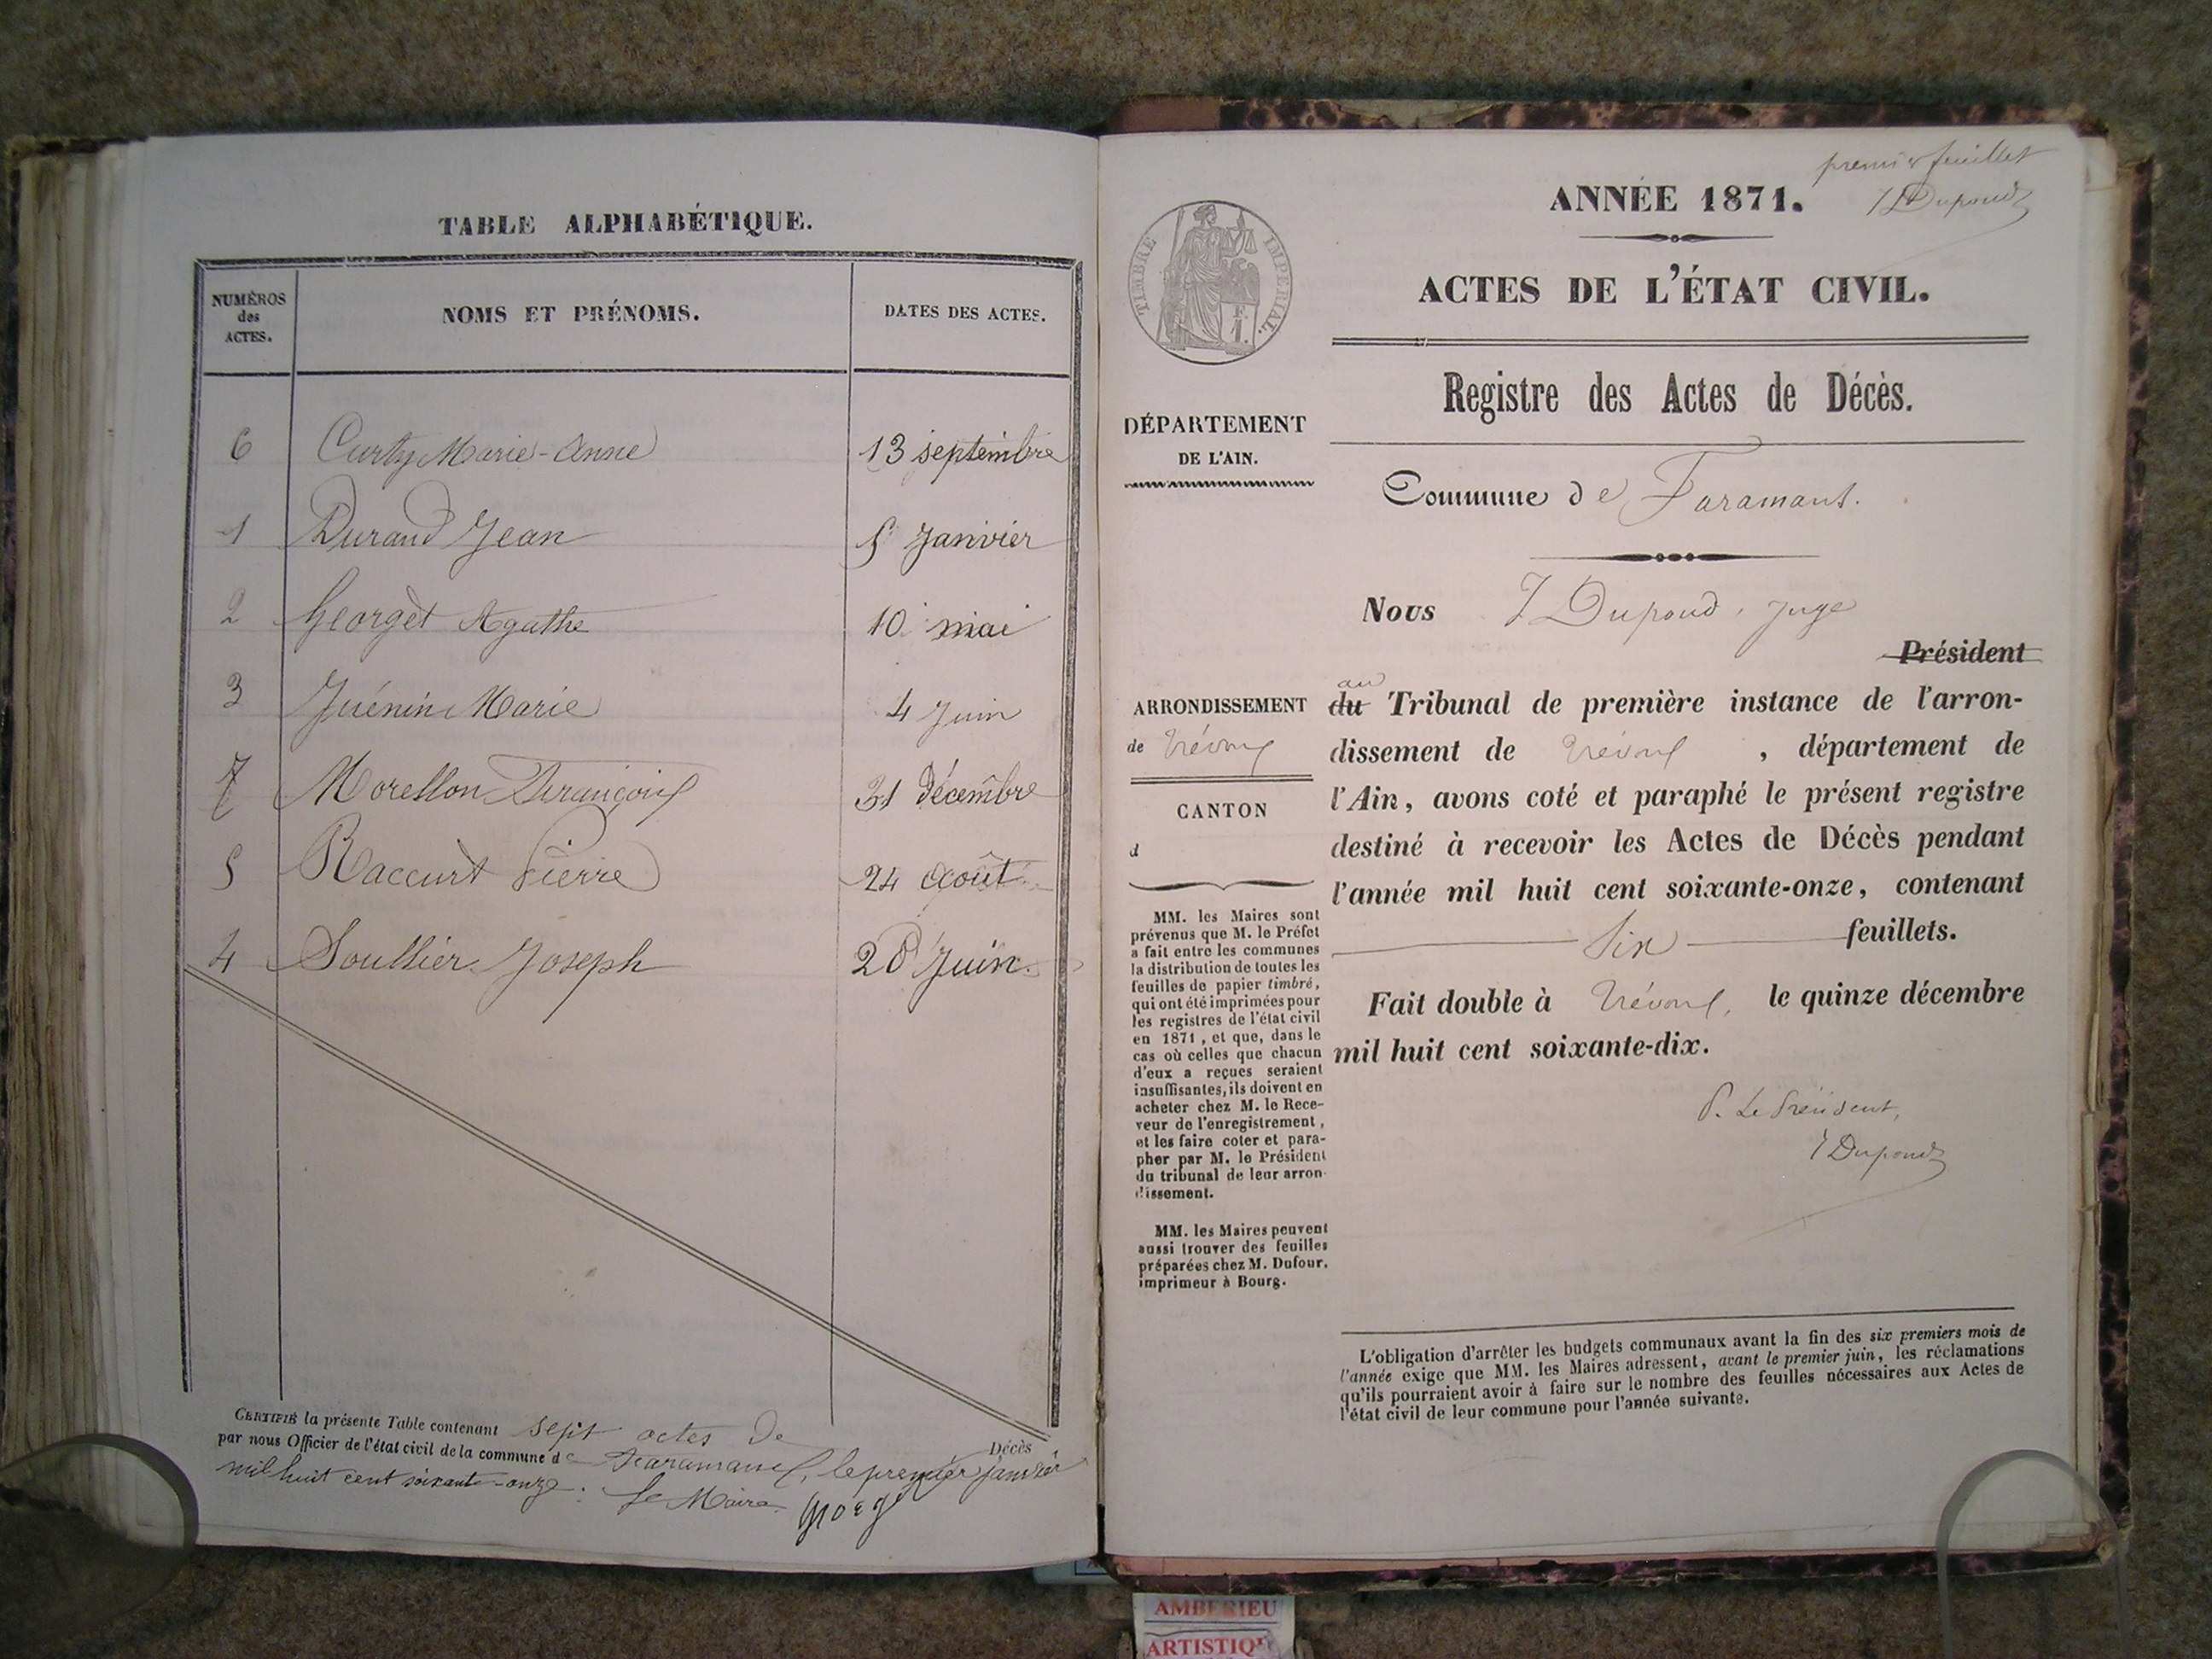 TABLE ALPHABÉTIQUE.
NUMÉROS des ACTES.
NOMS ET PRÉNOMS.
DATES DES ACTES.
6 Curty Marie-Anne 13 septembre
1 Durand Jean 5 Janvier
2 Georget Agathe 10 mai
3 Juénin Marie 4 Juin
7 Morellon François 31 décembre
5 Raccurt Pierre 24 Août
4 Soullier Joseph 28 Juin.
CERTIFIÉ la présente Table contenant sept actes de Décès
par nous Officier de l'état civil de la commune de Faramans, le premier janvier
mil huit cent soixante-onze. Le Maire
premier feuillet
J Dupond
ANNÉE 1871.
ACTES DE L'ÉTAT CIVIL.
TIMBRE IMPÉRIAL.
F.
1.
Registre des Actes de Décès.
DÉPARTEMENT
DE L'AIN.
Commune de Faramans.
Nous J Dupond, Juge
Président
au
du Tribunal de première instance de l'arron-
dissement de Trévoux, département de
l'Ain, avons coté et paraphé le présent registre
destiné à recevoir les Actes de Décès pendant
l'année mil huit cent soixante-onze, contenant
Six feuillets.
Fait double à Trévoux, le quinze décembre
mil huit cent soixante-dix.
P. Le Président,
J Dupond
ARRONDISSEMENT
de Trévoux
CANTON
d
MM. les Maires sont
prévenus que M. le Préfet
a fait entre les communes
la distribution de toutes les
feuilles de papier timbré,
qui ont été imprimées pour
les registres de l'état civil
en 1871, et que, dans le
cas où celles que chacun
d'eux a reçues seraient
insuffisantes, ils doivent en
acheter chez M. le Rece-
veur de l'enregistrement,
et les faire coter et para-
pher par M. le Président
du tribunal de leur arron-
dissement.
MM. les Maires peuvent
aussi trouver des feuilles
préparées chez M. Dufour,
imprimeur à Bourg.
L'obligation d'arrêter les budgets communaux avant la fin des six premiers mois de
l'année exige que MM. les Maires adressent, avant le premier juin, les réclamations
qu'ils pourraient avoir à faire sur le nombre des feuilles nécessaires aux Actes de
l'état civil de leur commune pour l'année suivante.
AMBERIEU
ARTISTIQU